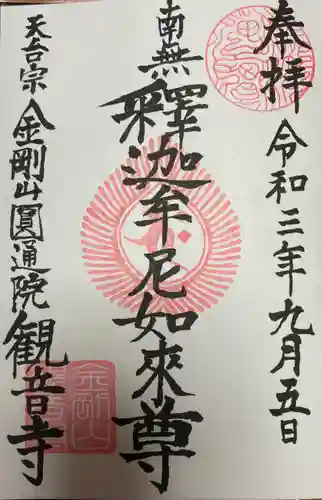 奉拝
令和三年九月五日
南無釋迦牟尼如來尊
天台宗 金剛山圓通院 観音寺